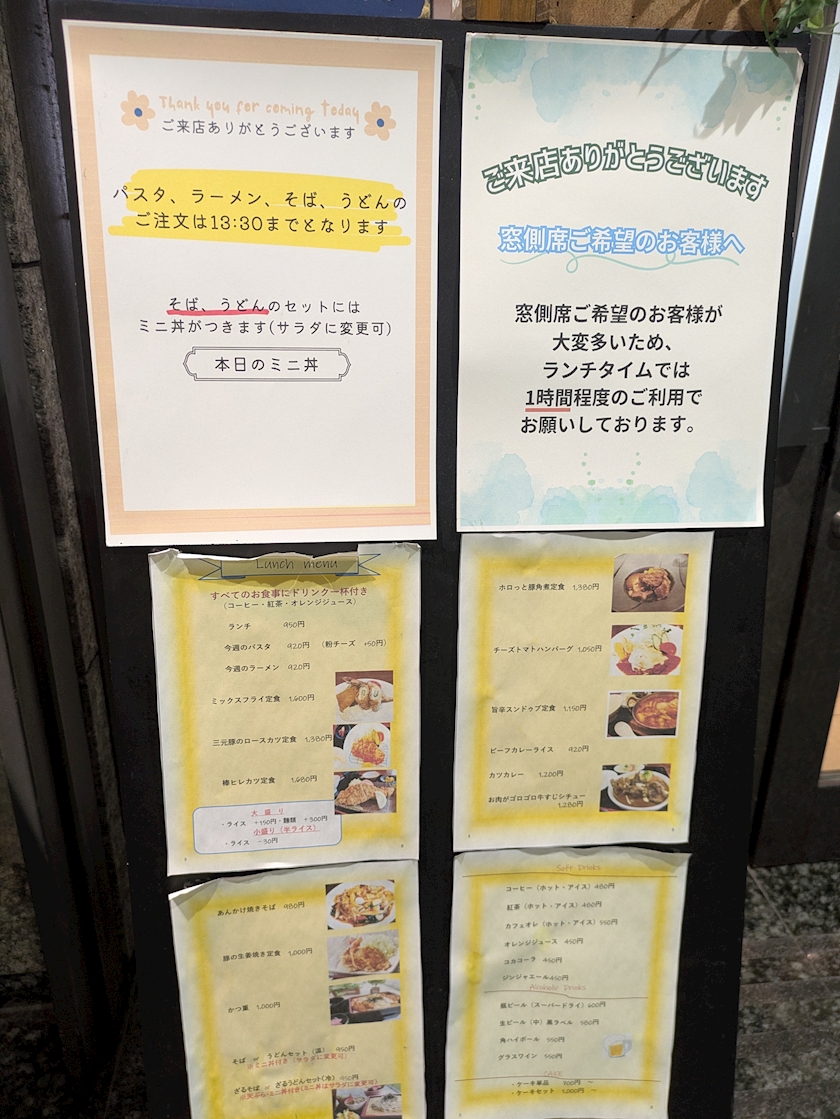 Thank you for coming today
ご来店ありがとうございます
パスタ、ラーメン、そば、うどんの
ご注文は13:30までとなります
そば、うどんのセットには
ミニ丼がつきます(サラダに変更可)
本日のミニ丼
ご来店ありがとうございます
窓側席ご希望のお客様へ
窓側席ご希望のお客様が
大変多いため、
ランチタイムでは
1時間程度のご利用で
お願いしております。
Lunch menu
すべてのお食事にドリンク一杯付き
(コーヒー・紅茶・オレンジジュース)
ランチ 950円
今週のパスタ 920円 (粉チーズ +50円)
今週のラーメン 920円
ミックスフライ定食 1,600円
三元豚のロースカツ定食 1,380円
棒ヒレカツ定食 1,680円
大盛り
・ライス +150円・麺類 +300円
小盛り(半ライス)
・ライス -30円
ホロっと豚角煮定食 1,380円
チーズトマトハンバーグ 1,050円
旨辛スンドゥブ定食 1,150円
ビーフカレーライス 920円
カツカレー 1,200円
お肉がゴロゴロ牛すじシチュー
1,280円
あんかけ焼きそば 980円
豚の生姜焼き定食 1,000円
かつ重 1,000円
そば or うどんセット(温) 950円
※ミニ丼付き(サラダに変更可)
ざるそば or ざるうどんセット(冷) 950円
※天ぷら・ミニ丼付き(ミニ丼はサラダに変更可)
Soft Drinks
コーヒー(ホット・アイス)480円
紅茶(ホット・アイス)480円
カフェオレ(ホット・アイス)550円
オレンジジュース 450円
コカコーラ 450円
ジンジャエール450円
Alcoholic Drinks
瓶ビール(スーパードライ)600円
生ビール(中)黒ラベル 580円
角ハイボール 550円
グラスワイン 550円
CAKE
・ケーキ単品 500円 ～
・ケーキセット 1,000円 ～